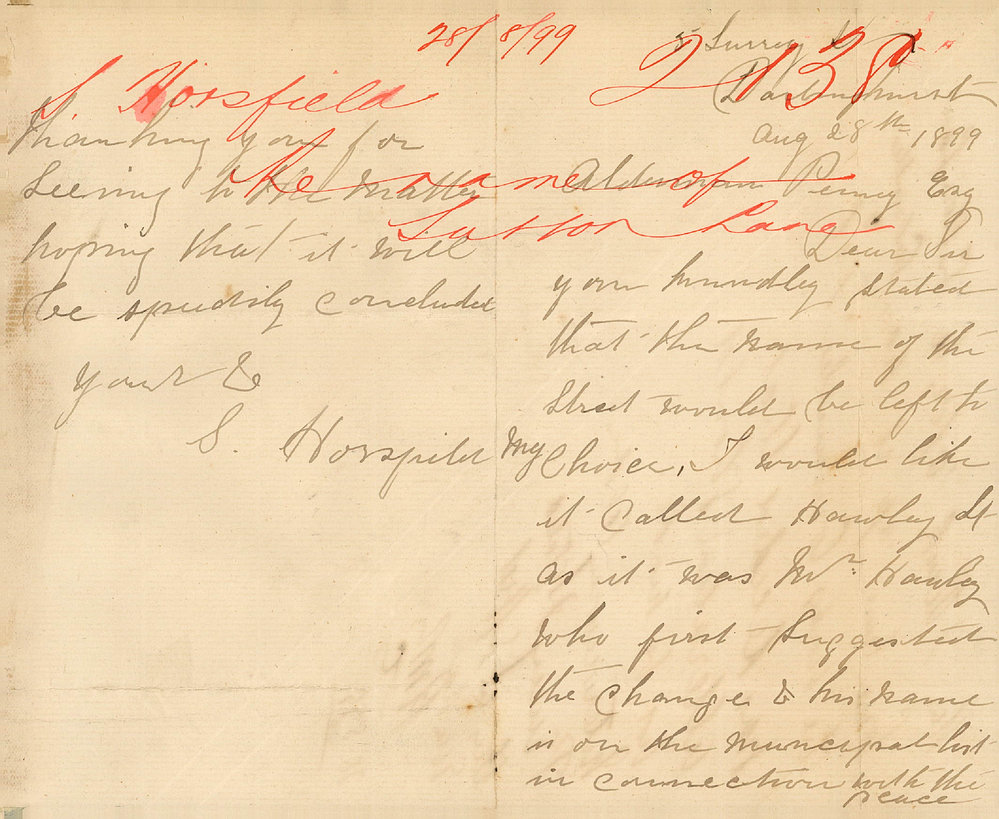 28/8/99
2138
S Horsfield
re name of
Sutton Lane
5 Surrey St
Darlinghurst
Aug 28th 1899
Alderman Penny Esq
Dear Sir
you kmndley stated
that the name of the
street would be left to
my Choice, I would like
it called Hawley St
as it was Mr. Hawley
who first suggested
the change & his name
is on the muncipal list
in connection with the
peace
Thanking you for
seeing to the matter
hoping that it will
be speedily concluded
yours &
S. Horsfield